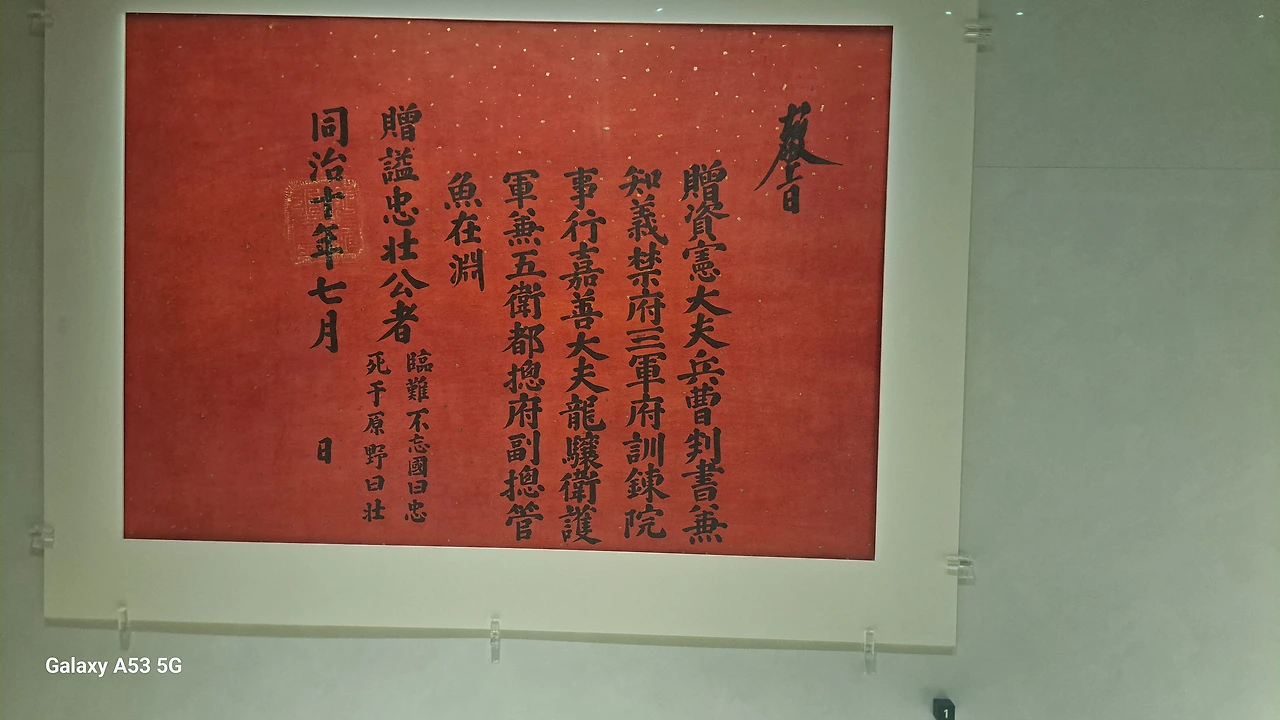 敎旨
贈資憲大夫兵曹判書兼
知義禁府三軍府訓鍊院
事行嘉善大夫龍驤衛護
軍兼五衛都摠府副摠管
魚在淵
贈諡忠壯公者
臨難不忘國曰忠
死于原野曰壯
同治十年七月 日
Galaxy A53 5G
1